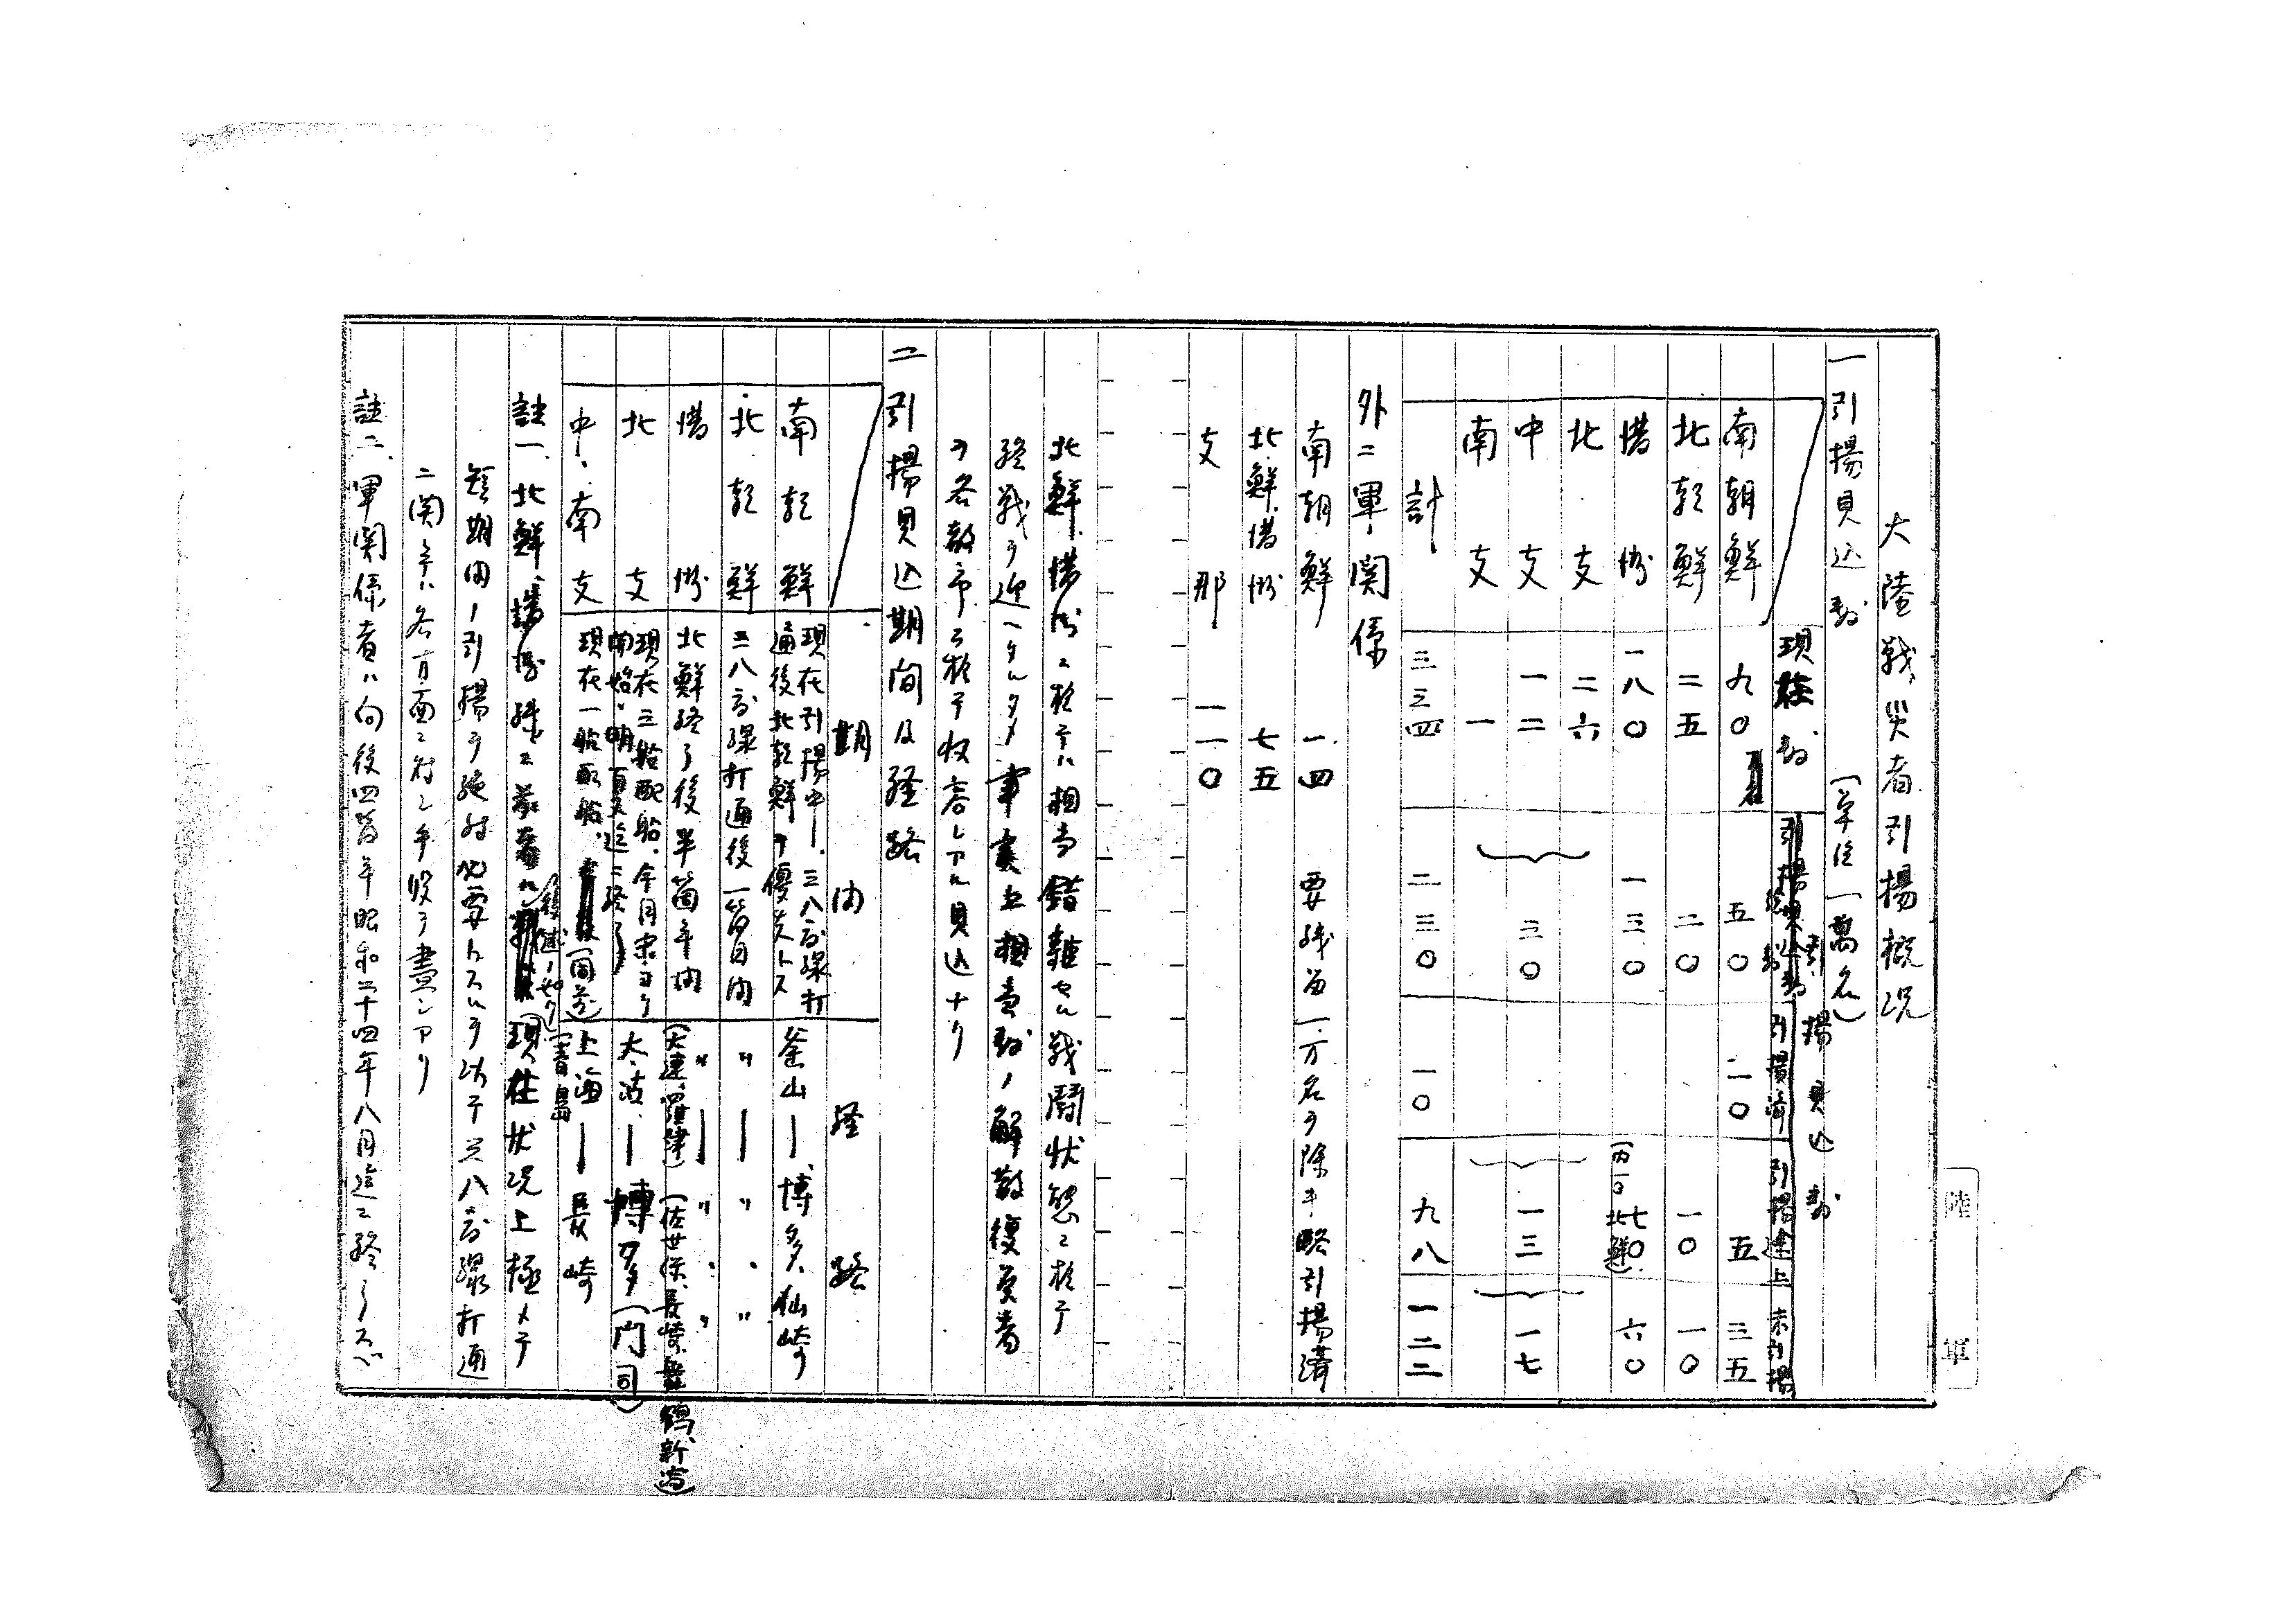 大陸戦災者引揚概況
一 引揚見込数 (単位一萬名)
現在数 引揚見込数
引揚済 引揚途上 未引揚
南朝鮮 九〇 五〇 二〇 五 三五
北朝鮮 二五 二〇 一〇 一〇
満洲 一八〇 一三〇 七〇 (内一〇北鮮) 六〇
北支 二六
中支 一二 三〇 一三 一七
南支 一
計 三三四 二三〇 一〇 九八 一二二
外ニ軍関係
南朝鮮 一四 要残留一万名ヲ除キ略引揚済
北鮮満洲 七五
支那 一一〇
北鮮、満洲ニ於テハ相当錯雑セル戦闘状態ニ於テ
終戦ヲ迎ヘタルタメ事実上相当数ノ解散復員者
ヲ各都市ニ於テ収容シアル見込ナリ
二 引揚見込期間及経路
期間 経路
南朝鮮 現在引揚中、三八度線打通後北朝鮮ヲ優先トス 釜山―博多、仙崎
北朝鮮 三八度線打通後一箇月内 〃―〃、〃
満洲 北鮮終了後半箇年内 〃―〃、〃 (大連、羅津) (佐世保、長崎、舞鶴、新潟)
北支 現在三船配船、今月末ヨリ開始、明夏迄ニ終了 太沽―博多(門司)
中、南支 現在一船配船、 上海―長崎 (青島)
註一、北鮮、満洲 現在状況上極メテ
短期間ノ引揚ヲ絶対必要トスルヲ以テ三八度線打通
ニ関シテハ各方面ニ対シ手段ヲ盡シアリ
註二、軍関係者ハ向後四箇年昭和二十四年八月迄ニ終ラスベ
陸軍